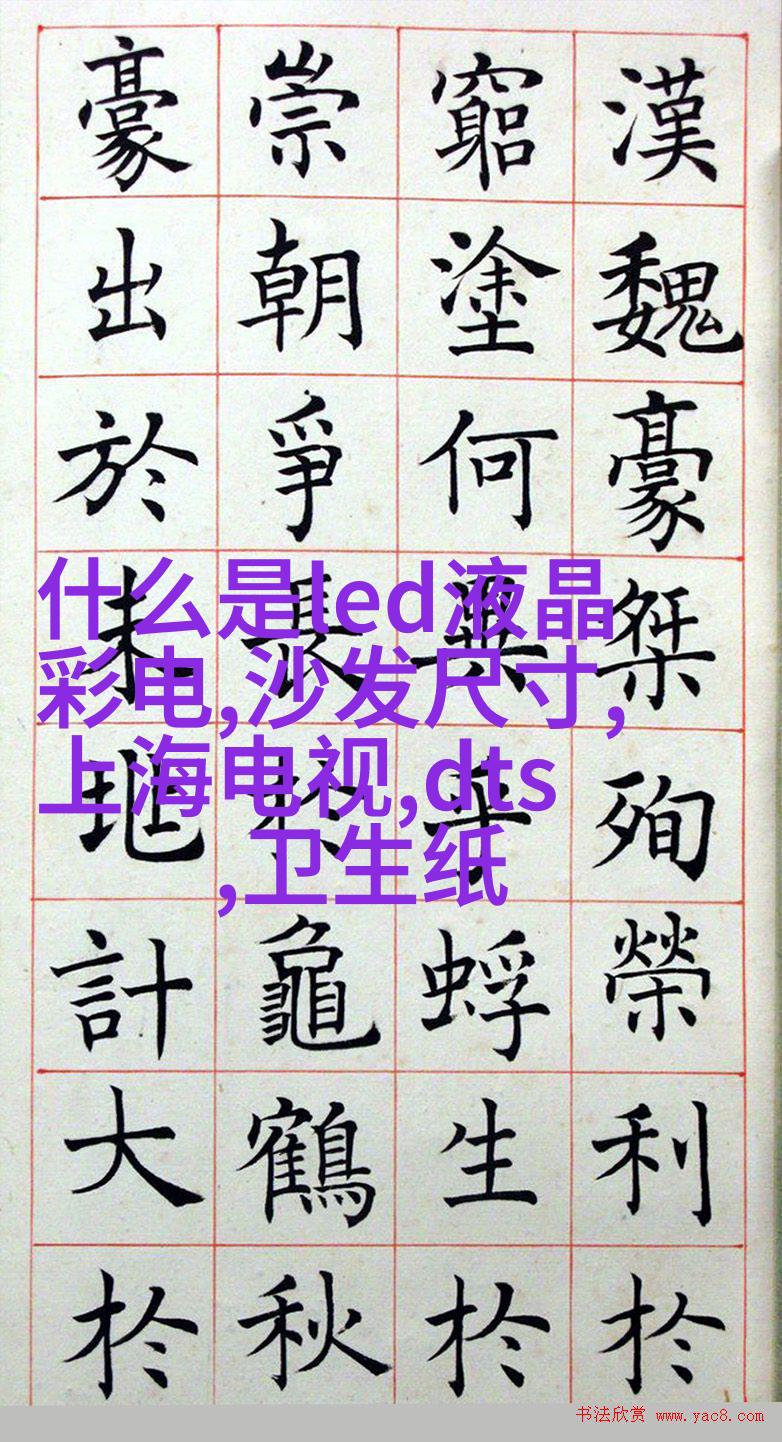 漢魏豪桀殉榮利扵
窮塗何異蜉生扵
崇朝爭長扵龜鶴秋
豪出於未計大扵
什么是led液晶
彩电,沙发尺寸,
上海电视,dts
,卫生纸
书法欣赏 www.yac8.com